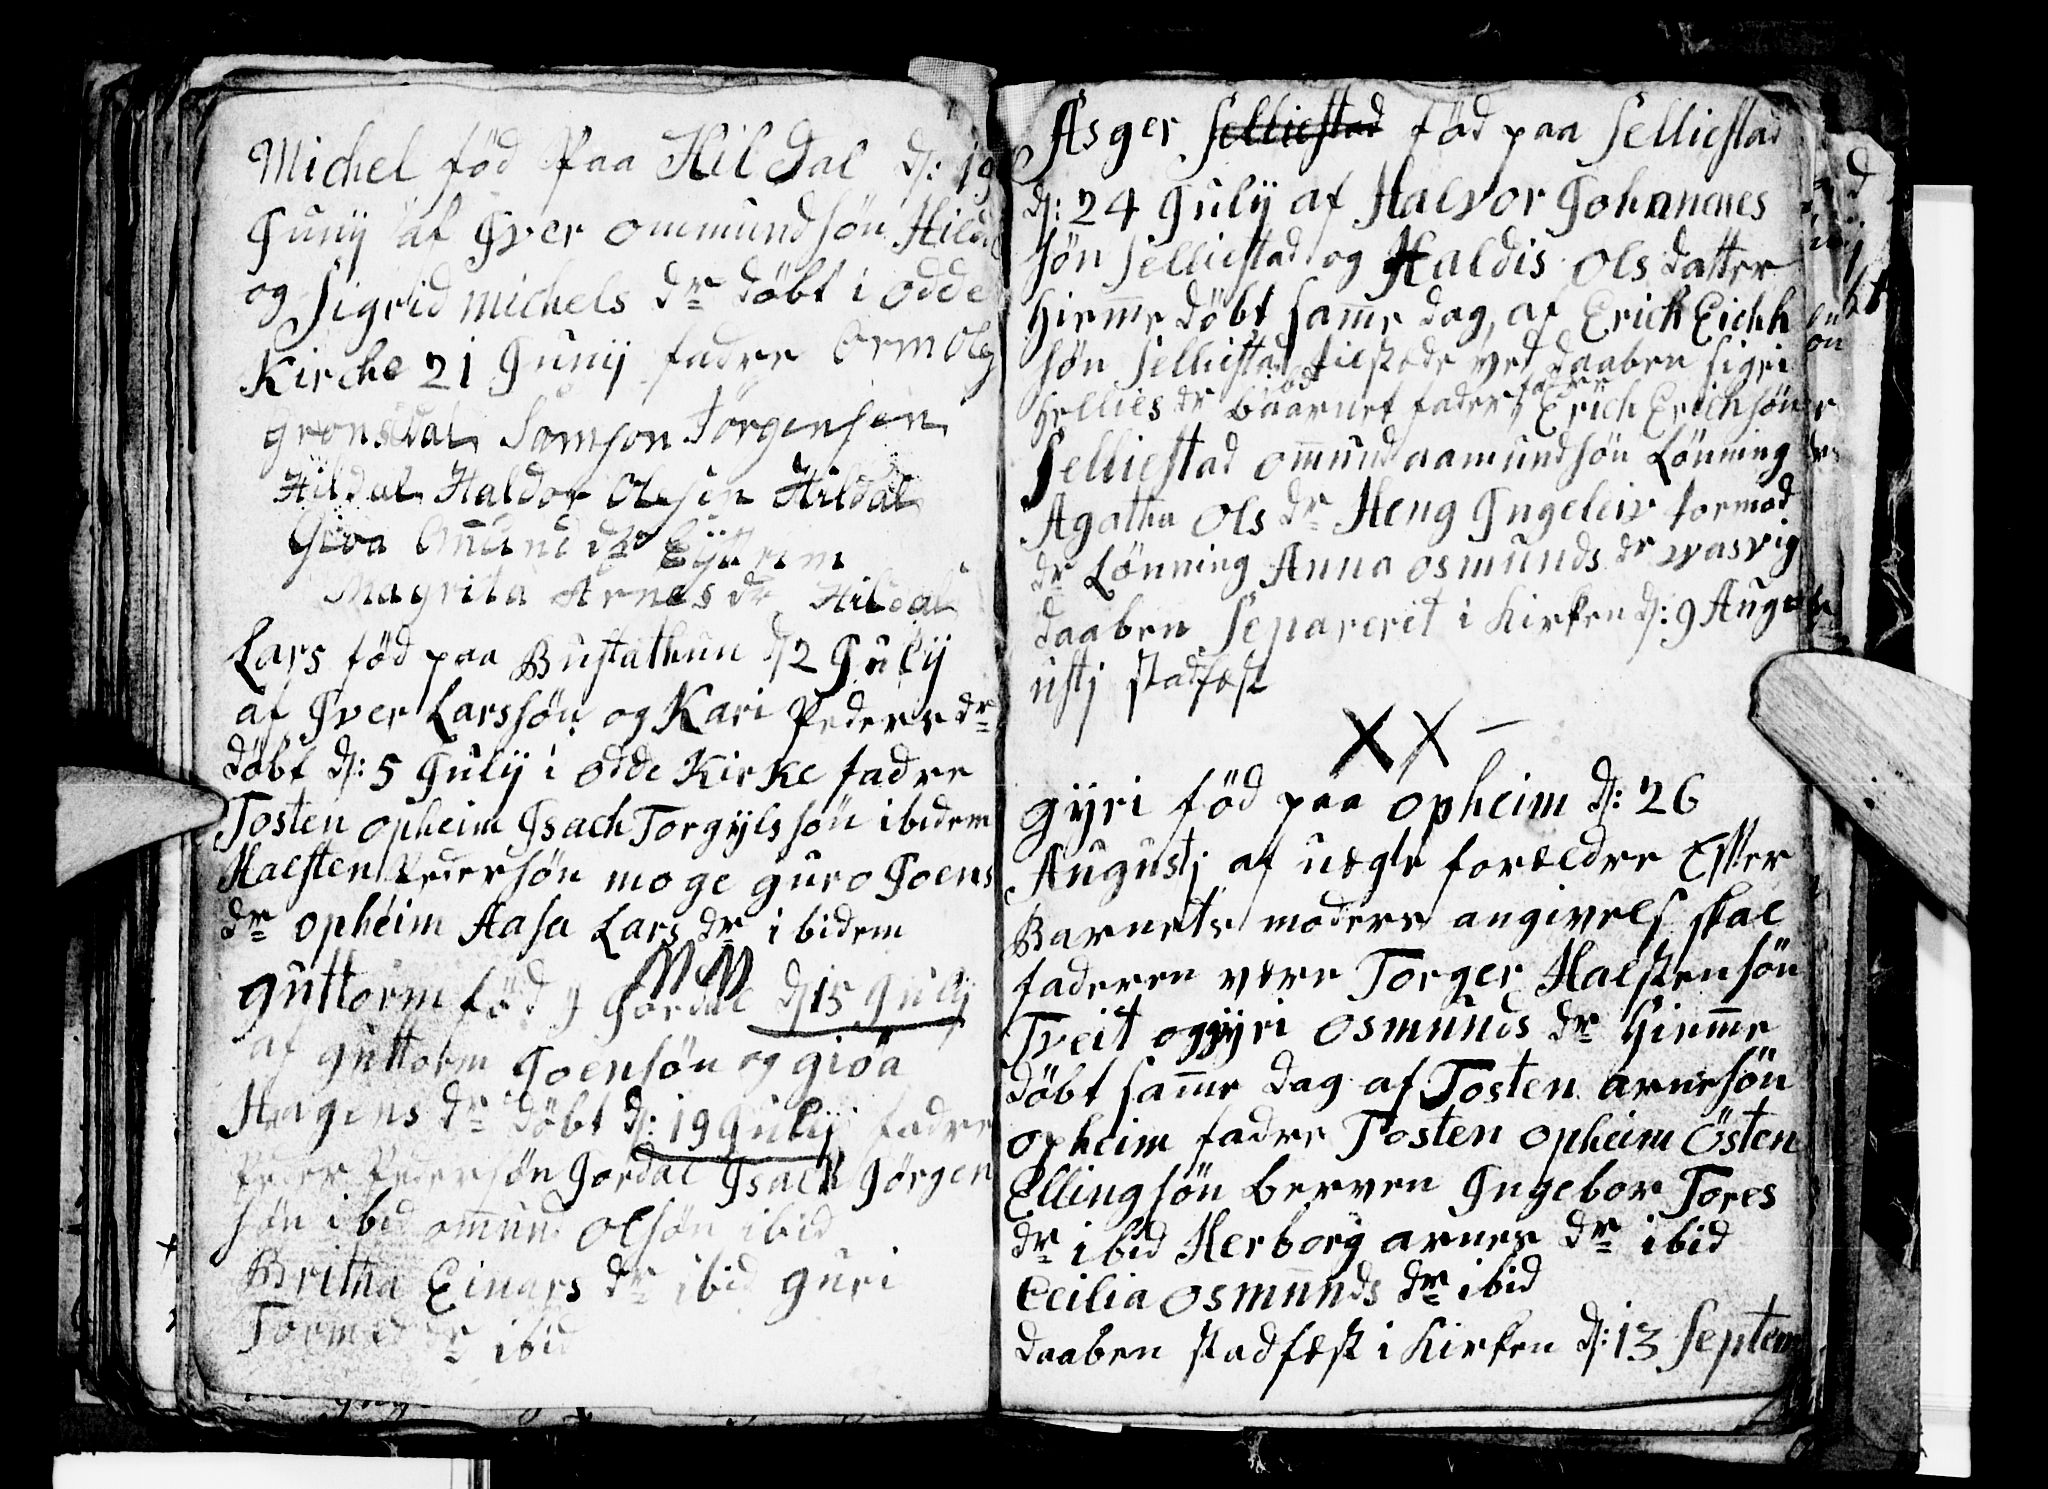 Michel föd Paa Hildal d: 19
Junij af Iver ommundsön Hildal
og Sigrid michels dr döbt i odde
Kirche 21 Junij fadre Orm Ols
Gronsdal Samson Jörgensen
Hildal Haldor Olesen Hildal
Giöa Omund dr Eÿtrem
Magrita Arnes dr Hildal
Lars föd paa Bustathun d 2 Julij
af Iver Larssön og Kari Peders dr
döbt d: 5 Julij i odde Kirke fadre
Tosten opheim Isach Torgÿls sön ibidem
Halsten Pedersön moge guro Joens
dr opheim Aasa Lars dr ibidem
guttorm föd J Jordal d 15 Julij
af guttorm Joensön og giöa
Hagens dr döbt d: 19 Julij fadre
Peder Pedersön Jordal Isach Jörgen
sön ibid omund olsön ibid
Britha Einars dr ibid guri
Tormod dr ibid
Asger Selliestad föd paa Selliestad
d: 24 Julij af Halvor Johannes
sön Selliestad og Haldis Ols datter
hiemme döbt samme dag, af Erich Eichh
sön Selliestad tilstede ved daaben sigri
Hellies dr baarnet fader fadre Erich Erichsön
Selliestad omund aamundsön Lönning
Agatha Ols dr Heng Ingeleiv tormod
dr Lönning Anna osmunds dr vasvig
daaben Separerit i Kirken d: 9 Aug
ustj stadfest
XX —
gÿri föd paa opheim d: 26
Augustj af uegte foreldre Efter
Barnets moders angivels skal
faderen vere Torger Halstensön
Tveit og gÿri osmunds dr hiemme
döbt samme dag af Tosten arnesön
opheim fadre Tosten opheim Östen
Ellingsön Berven Ingebor Tores
dr ibid Herborg arnes dr ibid
Cecilia osmunds dr ibid
daaben stadfest i Kirken d: 13 Septem